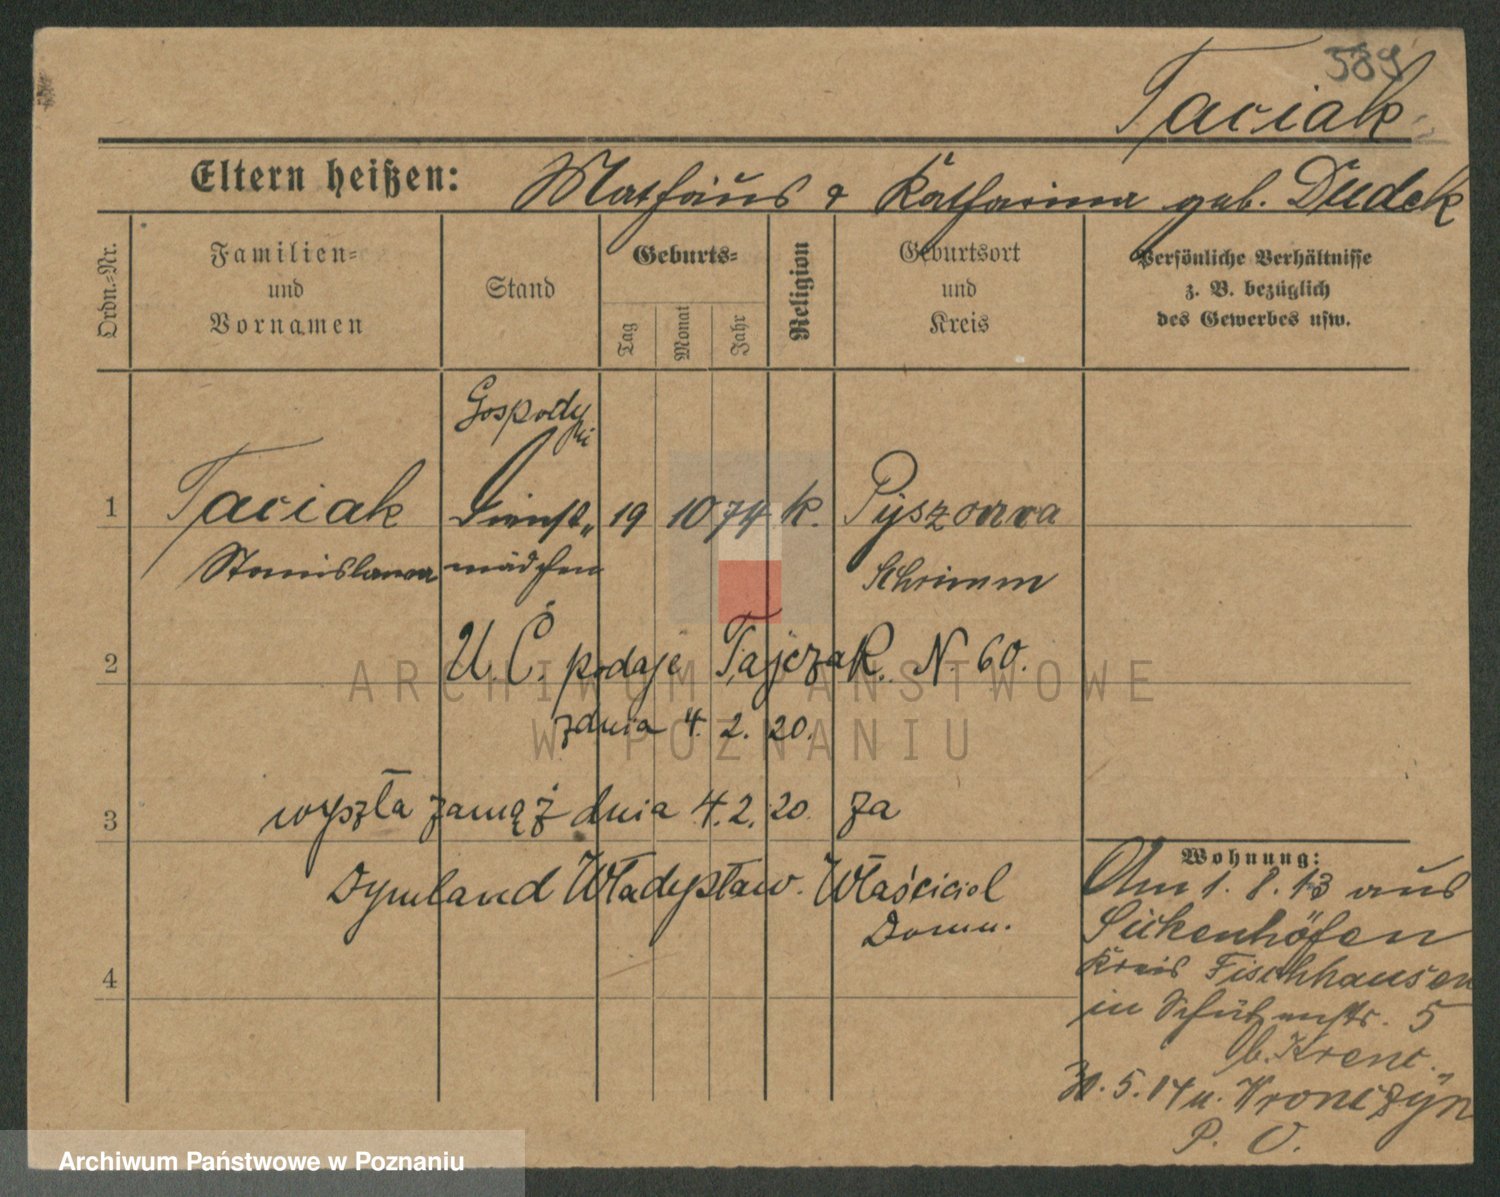 589
Taciak
Eltern heißen: Mathäus & Katharina geb. Dudek
Ordn.-Nr.
Familien-
und
Vornamen
Stand
Geburts-
Tag
Monat
Jahr
Religion
Geburtsort
und
Kreis
Persönliche Verhältnisse
z. B. bezüglich
des Gewerbes usw.
Gospody
ni
1 Taciak Dienst„ 19 10 74 k. Pyszonca
Stanislawa mädchen Schrimm
2 U. C. podaje Tajczak. N. 60.
z dnia 4. 2. 20.
3 wyszła zamąż dnia 4. 2. 20. za
Dymland Władysław. Właściciel
Domu.
4
Wohnung:
Am 1. 8. 13 aus
Sickenhöfen
Kreis Fischhausen
in Schützenstr. 5
b. Krenc.
30. 5. 14 n. Wronczyn
P. O.
ARCHIWUM PAŃSTWOWE
W POZNANIU
Archiwum Państwowe w Poznaniu